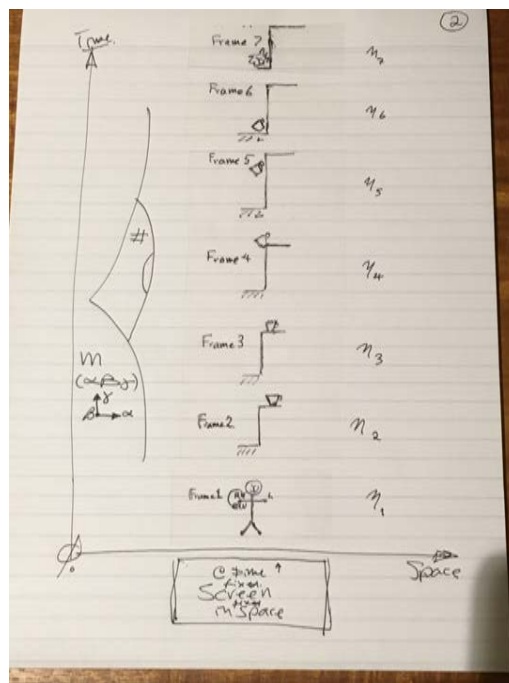 2
Time
Frame 7
η₇
Frame 6
η₆
Frame 5
η₅
#
Frame 4
η₄
Frame 3
η₃
m
(αβγ)
γ
β α
Frame 2
η₂
Frame 1
L
η₁
Space
@ time
fixed
Screen
fixed
in Space